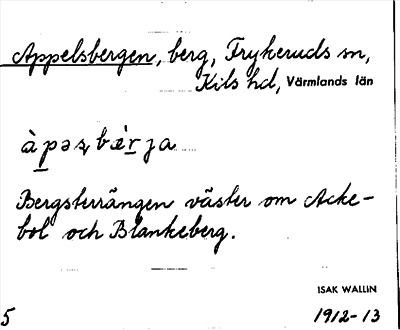 Appelsbergen, berg, Frykeruds sn,
Kils hd, Värmlands län
àpəs̨bæ̀rja
Bergsterrängen väster om Acke-
bol och Blankeberg.
ISAK WALLIN
5 1912-13